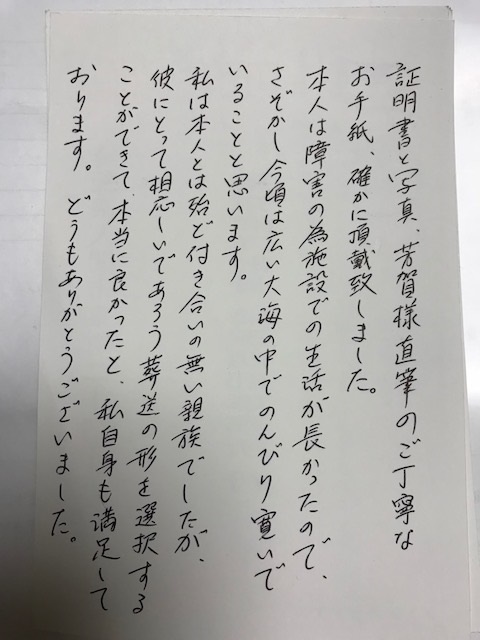 証明書と写真、芳賀様直筆のご丁寧な
お手紙、確かに頂戴致しました。
本人は障害の為施設での生活が長かったので、
さぞかし今頃は広い大海の中でのんびり寛いで
いることと思います。
私は本人とは殆ど付き合いの無い親族でしたが、
彼にとって相応しいであろう葬送の形を選択する
ことができて、本当に良かったと、私自身も満足して
おります。どうもありがとうございました。